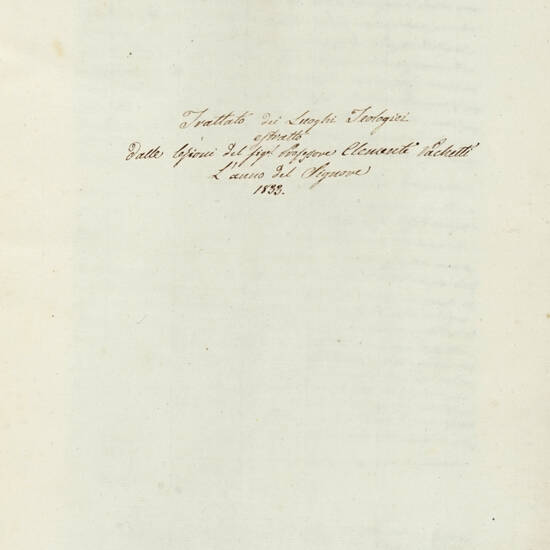 Trattato dei Luoghi Teologici
estratto
dalle lezioni del sigr Professore Clemente Pachetti
L'anno del Signore
1833.